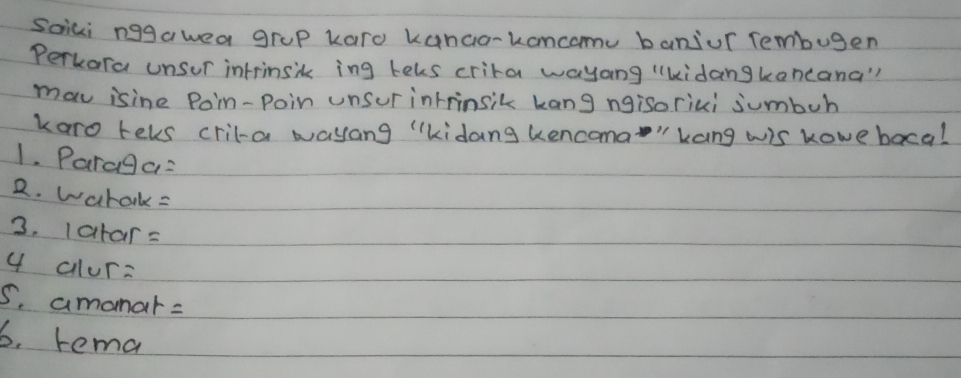 Saiki nggawea grup karo kanca-kancamu banjur rembugen
Perkara unsur intrinsik ing teks crita wayang "kidang kancana"
mau isine Poin-Poin unsur intrinsik kang ngisor iki jumbuh
karo teks crita wayang "kidang kencana" kang wis kowe baca!
1. Paraga=
2. watak=
3. latar=
4 alur=
5. amanat=
6. tema